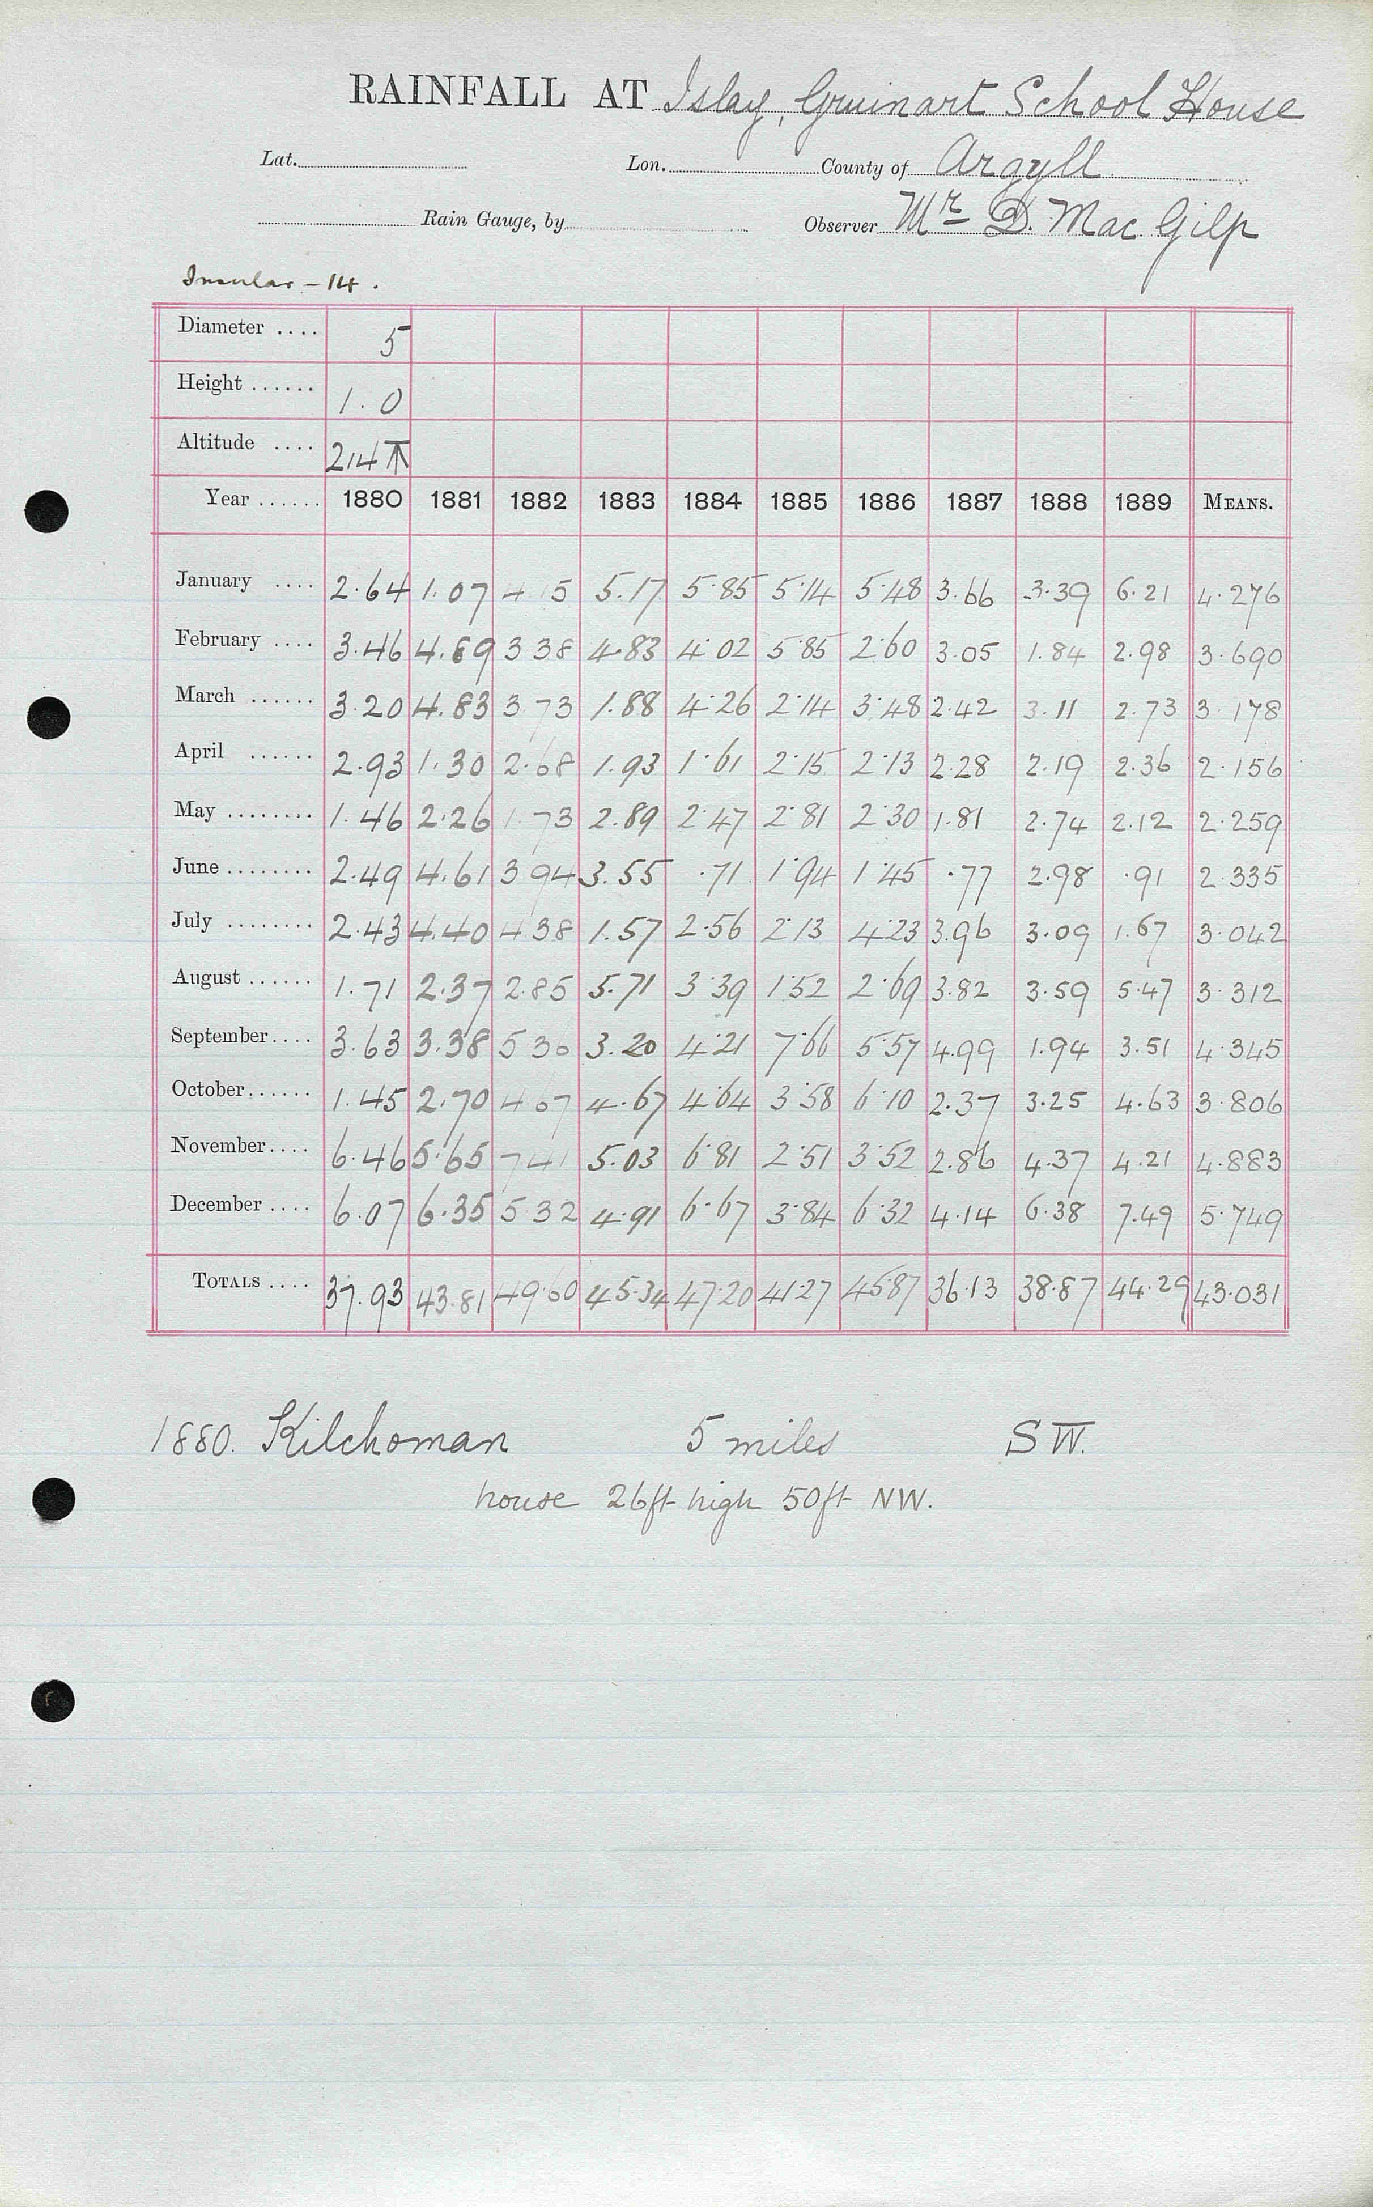 RAINFALL AT Islay, Gruinart School House
Lat. Lon. County of Argyll
Rain Gauge, by Observer Mr D. Mac Gilp
Insular - 14.
Diameter .... 5
Height ...... 1.0
Altitude .... 214 T
Year ...... 1880 1881 1882 1883 1884 1885 1886 1887 1888 1889 MEANS.
January .... 2.64 1.07 4.15 5.17 5.85 5.14 5.48 3.66 3.39 6.21 4.276
February .... 3.46 4.89 3.38 4.83 4.02 5.85 2.60 3.05 1.84 2.98 3.690
March ...... 3.20 4.83 3.73 1.88 4.26 2.14 3.48 2.42 3.11 2.73 3.178
April ...... 2.93 1.30 2.68 1.93 1.61 2.15 2.13 2.28 2.19 2.36 2.156
May ........ 1.46 2.26 1.73 2.89 2.47 2.81 2.30 1.81 2.74 2.12 2.259
June ........ 2.49 4.61 3.94 3.55 .71 1.94 1.45 .77 2.98 .91 2.335
July ........ 2.43 4.40 4.38 1.57 2.56 2.13 4.23 3.96 3.09 1.67 3.042
August ...... 1.71 2.37 2.85 5.71 3.39 1.52 2.69 3.82 3.59 5.47 3.312
September .... 3.63 3.38 5.36 3.20 4.21 7.66 5.57 4.99 1.94 3.51 4.345
October ...... 1.45 2.70 4.67 4.67 4.64 3.58 6.10 2.37 3.25 4.63 3.806
November .... 6.46 5.65 7.41 5.03 6.81 2.51 3.52 2.86 4.37 4.21 4.883
December .... 6.07 6.35 5.32 4.91 6.67 3.84 6.32 4.14 6.38 7.49 5.749
TOTALS .... 37.93 43.81 49.60 45.34 47.20 41.27 45.87 36.13 38.87 44.29 43.031
1880. Kilchoman 5 miles SW.
house 26ft high 50ft NW.